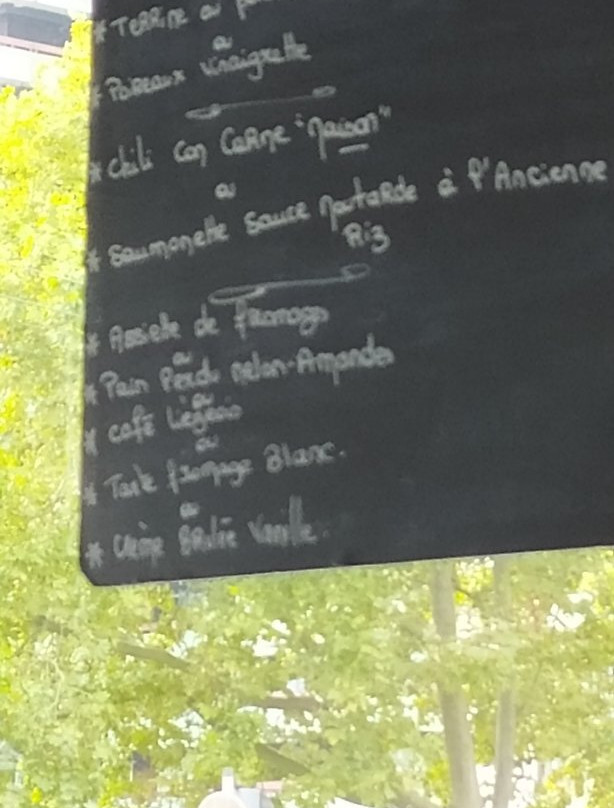 * TERRINE
ou
* Poireaux Vinaigrette
* Chili Con Carne "Maison"
ou
* Saumonette Sauce Moutarde à l'Ancienne
Riz
* Assiette de fromages
ou
* Pain Perdu Melon-Amandes
ou
* Café Liégeois
ou
* Tarte fromage Blanc.
ou
* Crème Brulée Vanille.